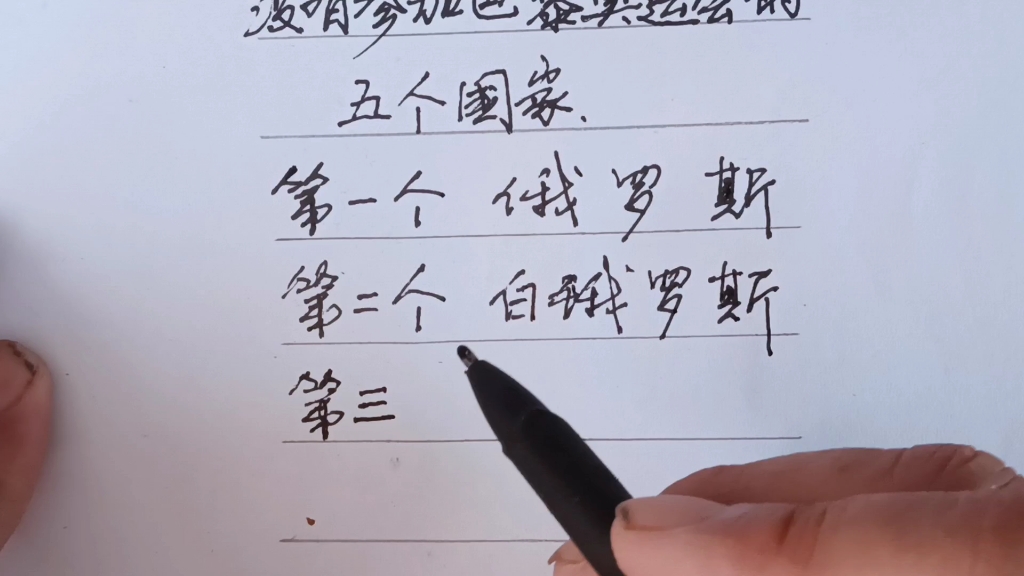 没有参加巴黎奥运会的
五个国家.
第一个 俄罗斯
第二个 白俄罗斯
第三